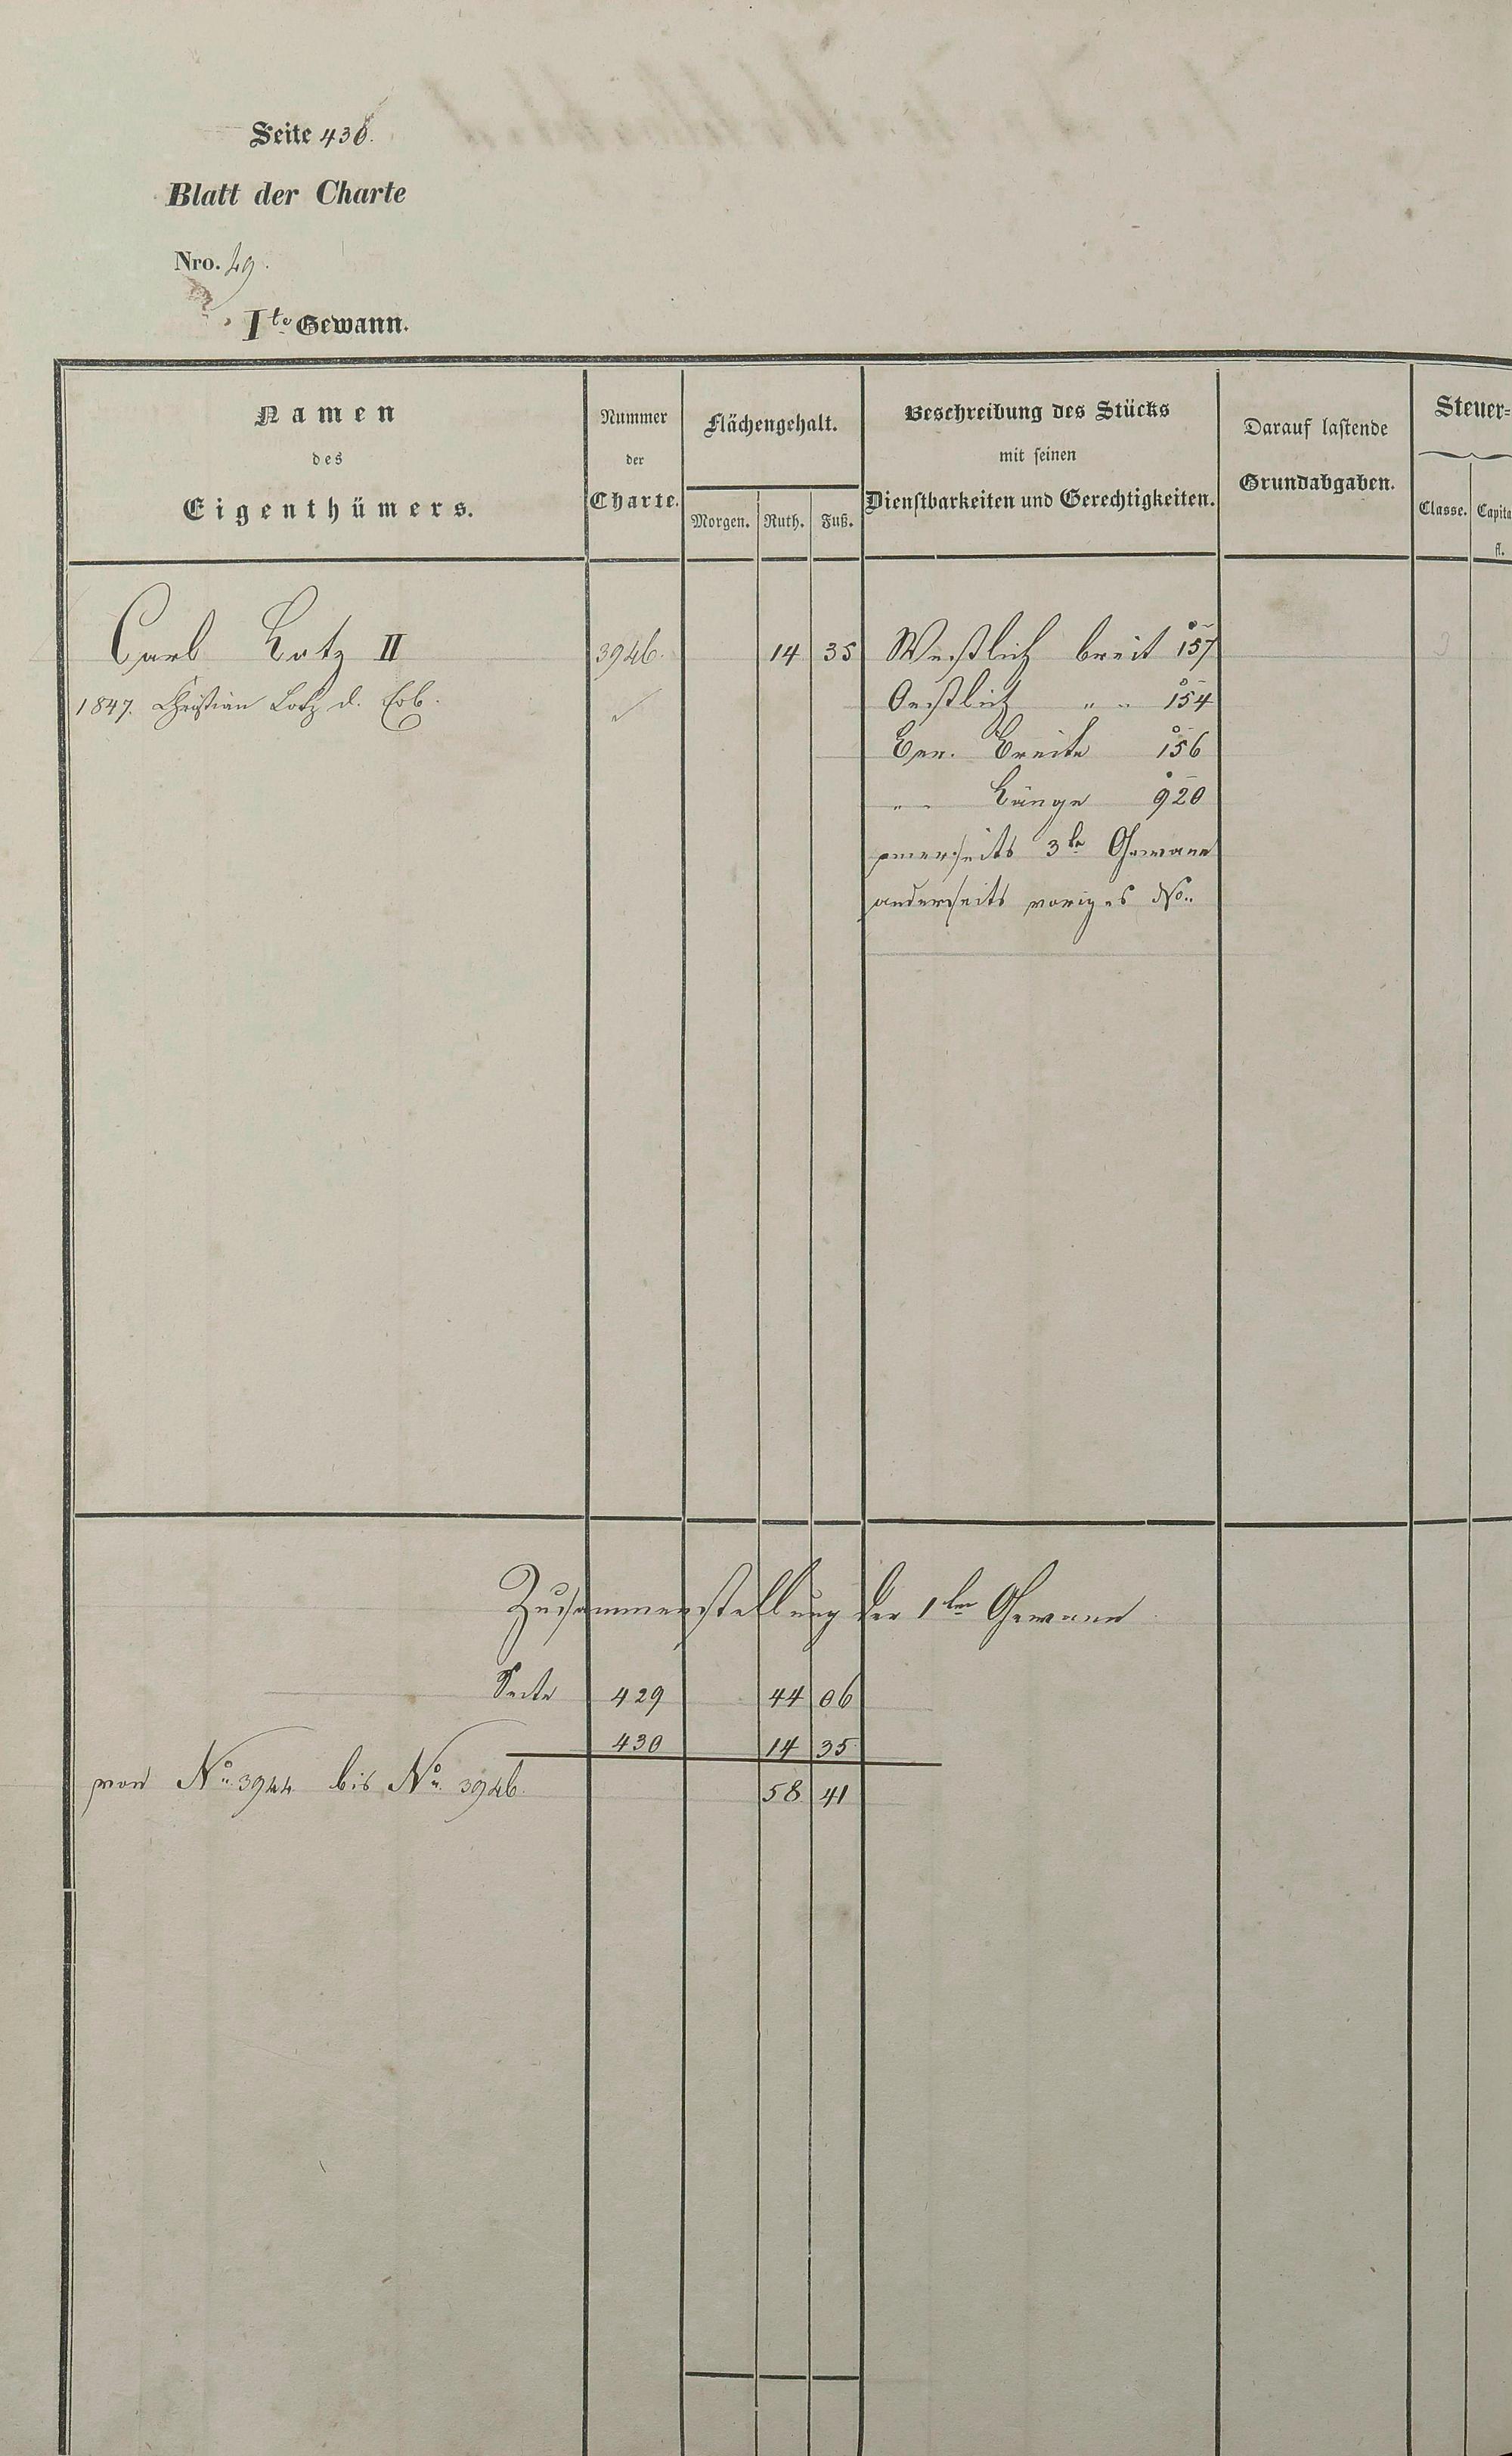 Seite 430.
Blatt der Charte
Nro. 49.
Ite Gewann.
Namen
des
Eigenthümers.
Nummer
der
Charte.
Flächengehalt.
Morgen. Ruth. Fuß.
Beschreibung des Stücks
mit seinen
Dienstbarkeiten und Gerechtigkeiten.
Darauf lastende
Grundabgaben.
Steuer=
Classe. Capita
fl.
Carl Lotz II 3946. 14 35 Westlich breit 157
1847. Christian Lotz d. Erb. Oestlich " " 154
Com. Breite 156
" " Länge 920
einerseits 3te Gewann
anderseits voriges No.
Zusammenstellung der 1ten Gewann
Seite 429 44 06
430 14 35
von No. 3944 bis No. 3946. 58 41